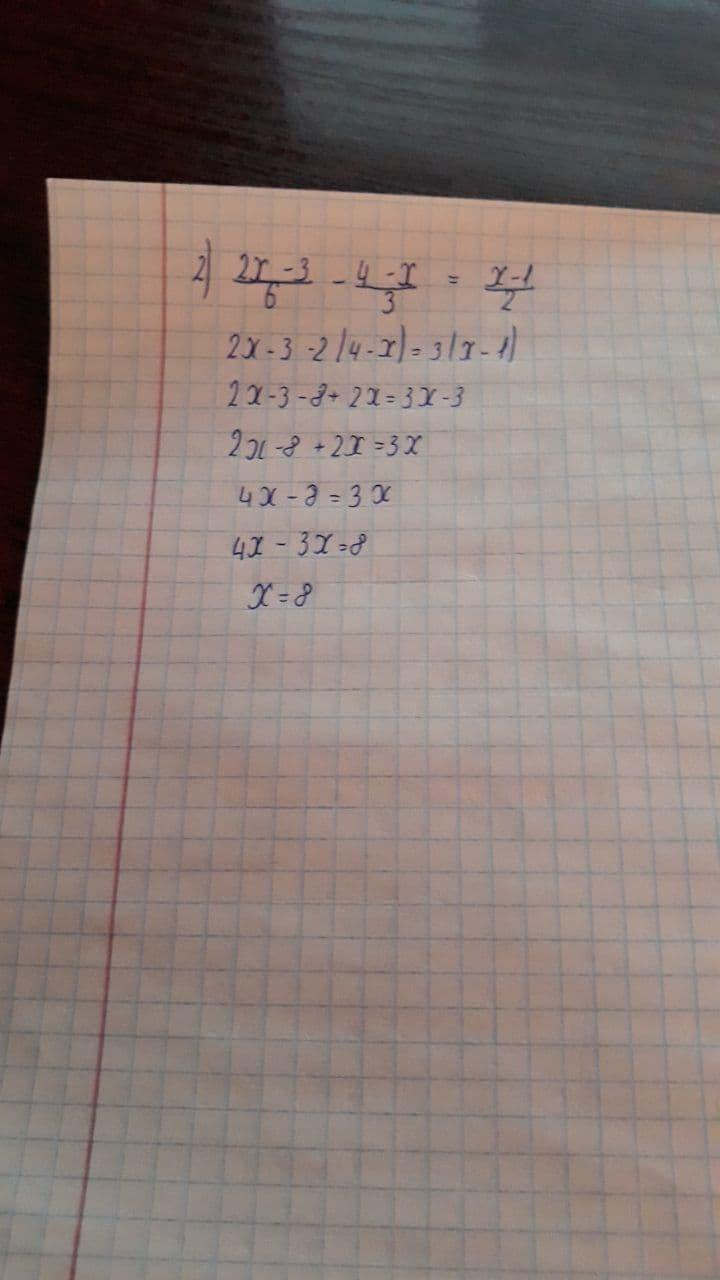 2) 2x-3/6 - 4-x/3 = x-1/2
2x-3-2(4-x)=3(x-1)
2x-3-8+2x=3x-3
2x-8+2x=3x
4x-8=3x
4x-3x=8
x=8